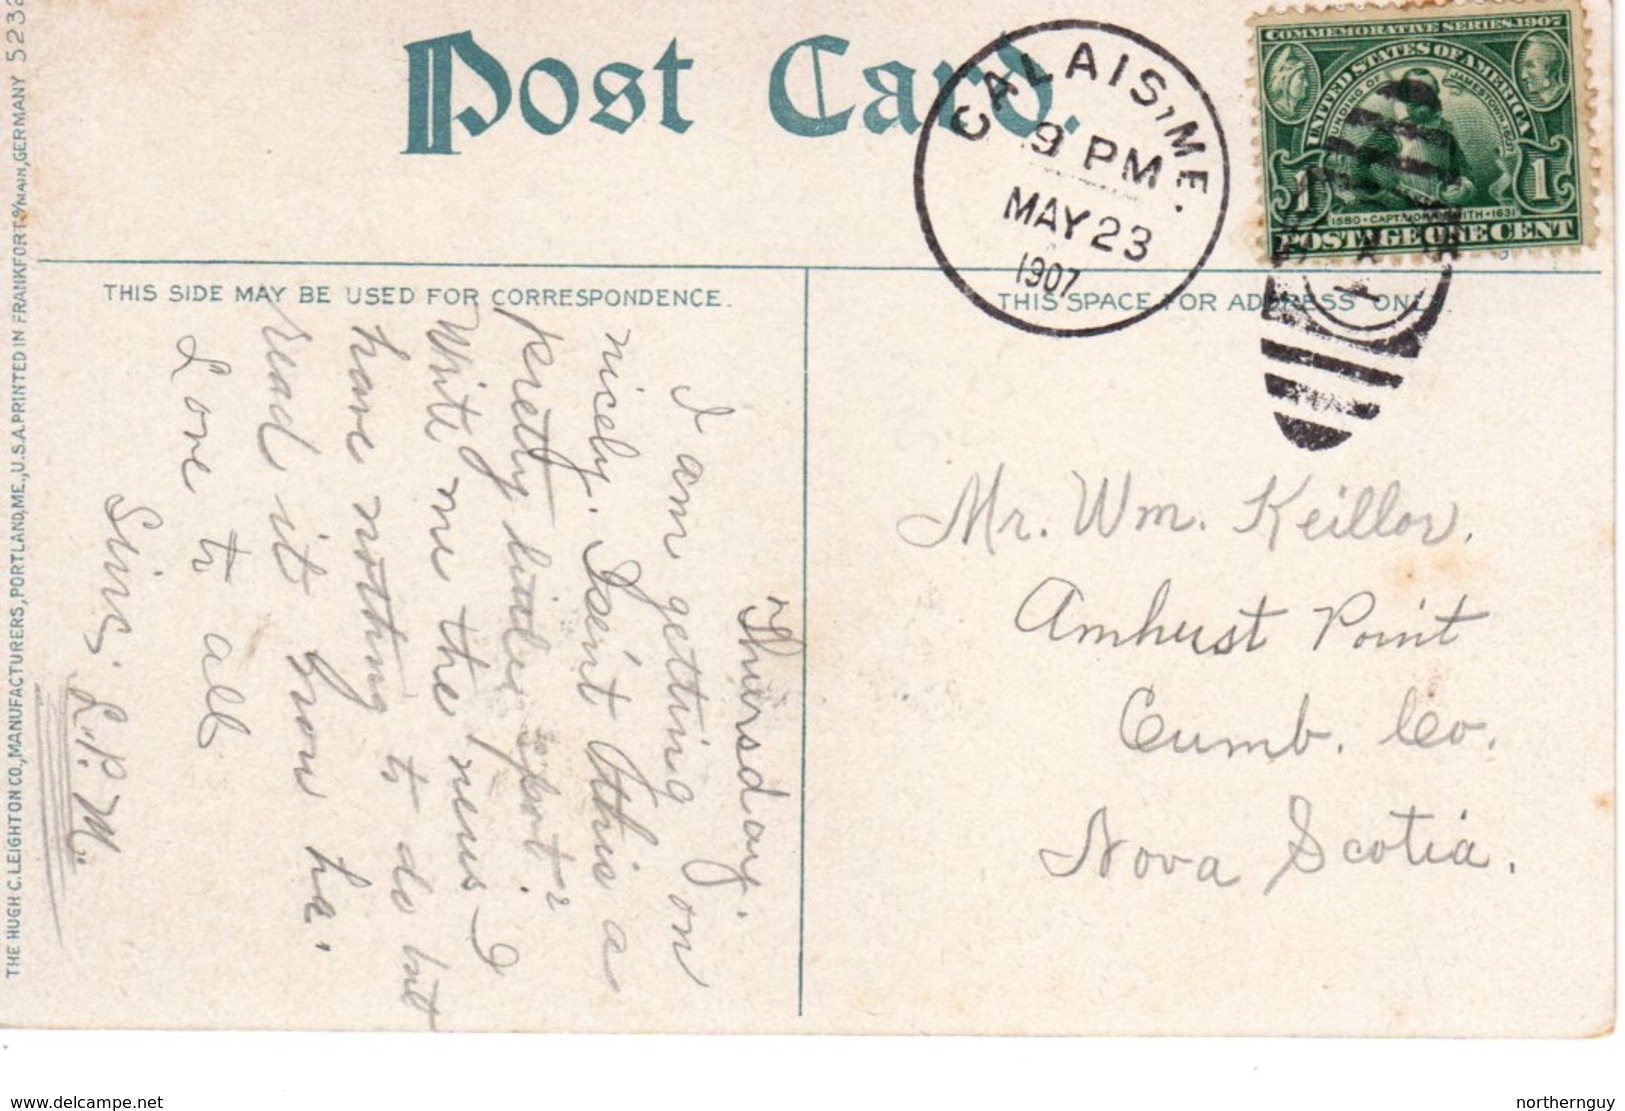 Post Card.
CALAIS, ME.
9 PM
MAY 23
1907
COMMEMORATIVE SERIES, 1907
UNITED STATES OF AMERICA
FOUNDING OF JAMESTOWN, 1607
1 1
1580 • CAPT. JOHN SMITH • 1631
POSTAGE ONE CENT
THIS SIDE MAY BE USED FOR CORRESPONDENCE.
THIS SPACE FOR ADDRESS ONL
Thursday.
I am getting on
nicely. Isn't this a
pretty little spot?
Write me the news I
have nothing to do but
read it now ha.
Love to all
Sinc. L.P.M.
Mr. Wm. Keillor,
Amhust Point
Cumb. Co.
Nova Scotia.
THE HUGH C. LEIGHTON CO., MANUFACTURERS, PORTLAND, ME., U.S.A. PRINTED IN FRANKFORT o/MAIN, GERMANY 5232
www.delcampe.net
northernguy